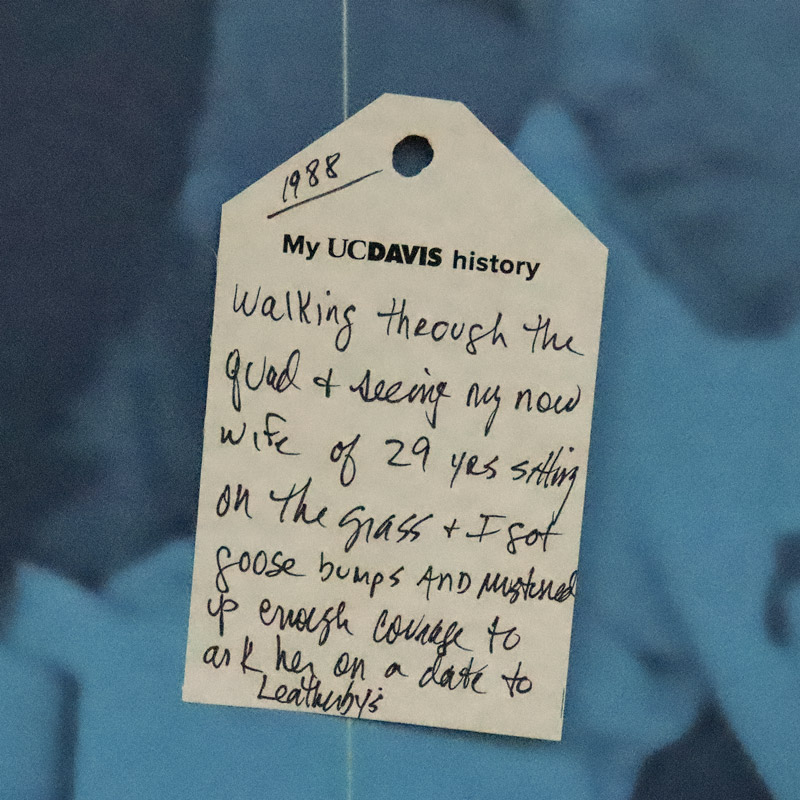 1988
My UCDAVIS history
Walking through the
quad + seeing my now
wife of 29 yrs sitting
on the grass + I got
goose bumps AND mustered
up enough courage to
ask her on a date to
Leatherby's